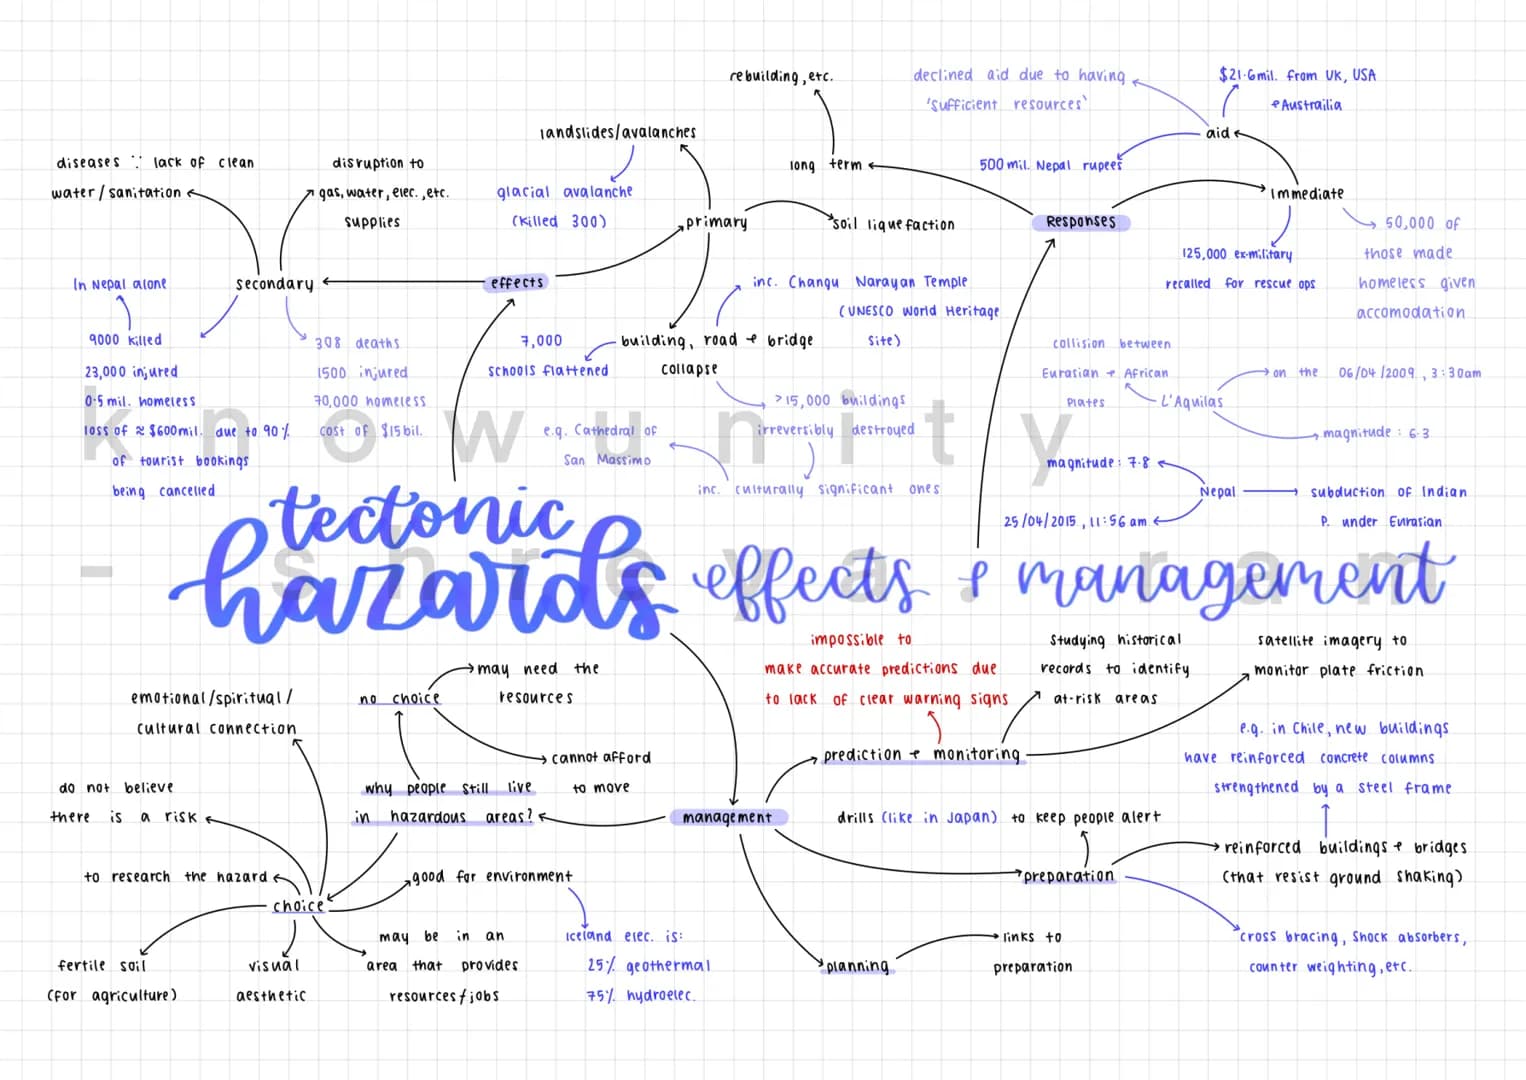 rebuilding, etc.
declined aid due to having
'sufficient resources'
$21.6mil. from UK, USA
+ Austrailia
landslides/avalanches
aid
diseases ∵ lack of clean
water/sanitation
disruption to
gas, water, elec., etc.
supplies
glacial avalanche
(killed 300)
long term
500 mil. Nepal rupees
immediate
primary
soil liquefaction
Responses
50,000 of
those made
homeless given
accomodation
125,000 ex-military
recalled for rescue ops
In Nepal alone
secondary
effects
inc. Changu Narayan Temple
(UNESCO World Heritage
site)
9000 killed
23,000 injured
0.5 mil. homeless
loss of ≈ $600mil. due to 90%
of tourist bookings
being cancelled
308 deaths
1500 injured
70,000 homeless
cost of $15bil.
7,000
schools flattened
building, road + bridge
collapse
>15,000 buildings
irreversibly destroyed
e.g. Cathedral of
San Massimo
inc. culturally significant ones
collision between
Eurasian + African
Plates
L'Aquilas
on the 06/04/2009, 3:30am
magnitude: 6.3
magnitude: 7.8
Nepal
subduction of Indian
P. under Eurasian
25/04/2015, 11:56am
knowunity
- shreya.ram
tectonic
hazards
effects + management
impossible to
make accurate predictions due
to lack of clear warning signs
studying historical
records to identify
at-risk areas
satellite imagery to
monitor plate friction
may need the
resources
no choice
emotional/spiritual/
cultural connection
cannot afford
to move
prediction + monitoring
e.g. in Chile, new buildings
have reinforced concrete columns
strengthened by a steel frame
do not believe
there is a risk
why people still live
in hazardous areas?
management
drills (like in Japan) to keep people alert
reinforced buildings + bridges
(that resist ground shaking)
to research the hazard
good for environment
preparation
choice
Iceland elec. is:
25% geothermal
75% hydroelec.
cross bracing, shock absorbers,
counter weighting, etc.
may be in an
area that provides
resources/jobs
fertile soil
(for agriculture)
visual
aesthetic
planning
links to
preparation